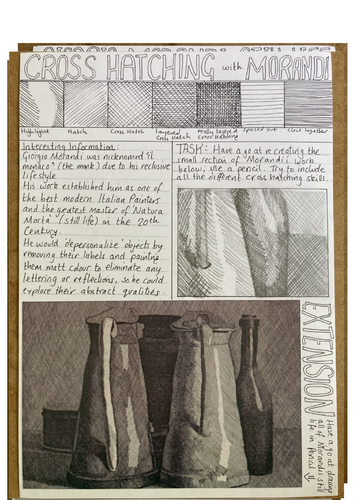 CROSS HATCHING with MORANDI
Highlight
Hatch
Cross Hatch
Layered
Cross Hatch
really layered
cross hatching
spaced out
close together
Interesting Information:
Giorgio Morandi was nicknamed 'il
monaco' (the monk) due to his reclusive
lifestyle.
His work established him as one of
the best modern Italian Painters
and the greatest master of 'Natura
Morta' (still life) in the 20th
Century.
He would 'depersonalize' objects by
removing their labels and painting
them matt colour to eliminate any
lettering or reflections, so he could
explore their abstract qualities.
TASK: Have a go at recreating the
small section of Morandi's work
below, use a pencil. Try to include
all the different cross hatching skills.
EXTENSION
Have a go at drawing
all of Morandi's still
life in pencil